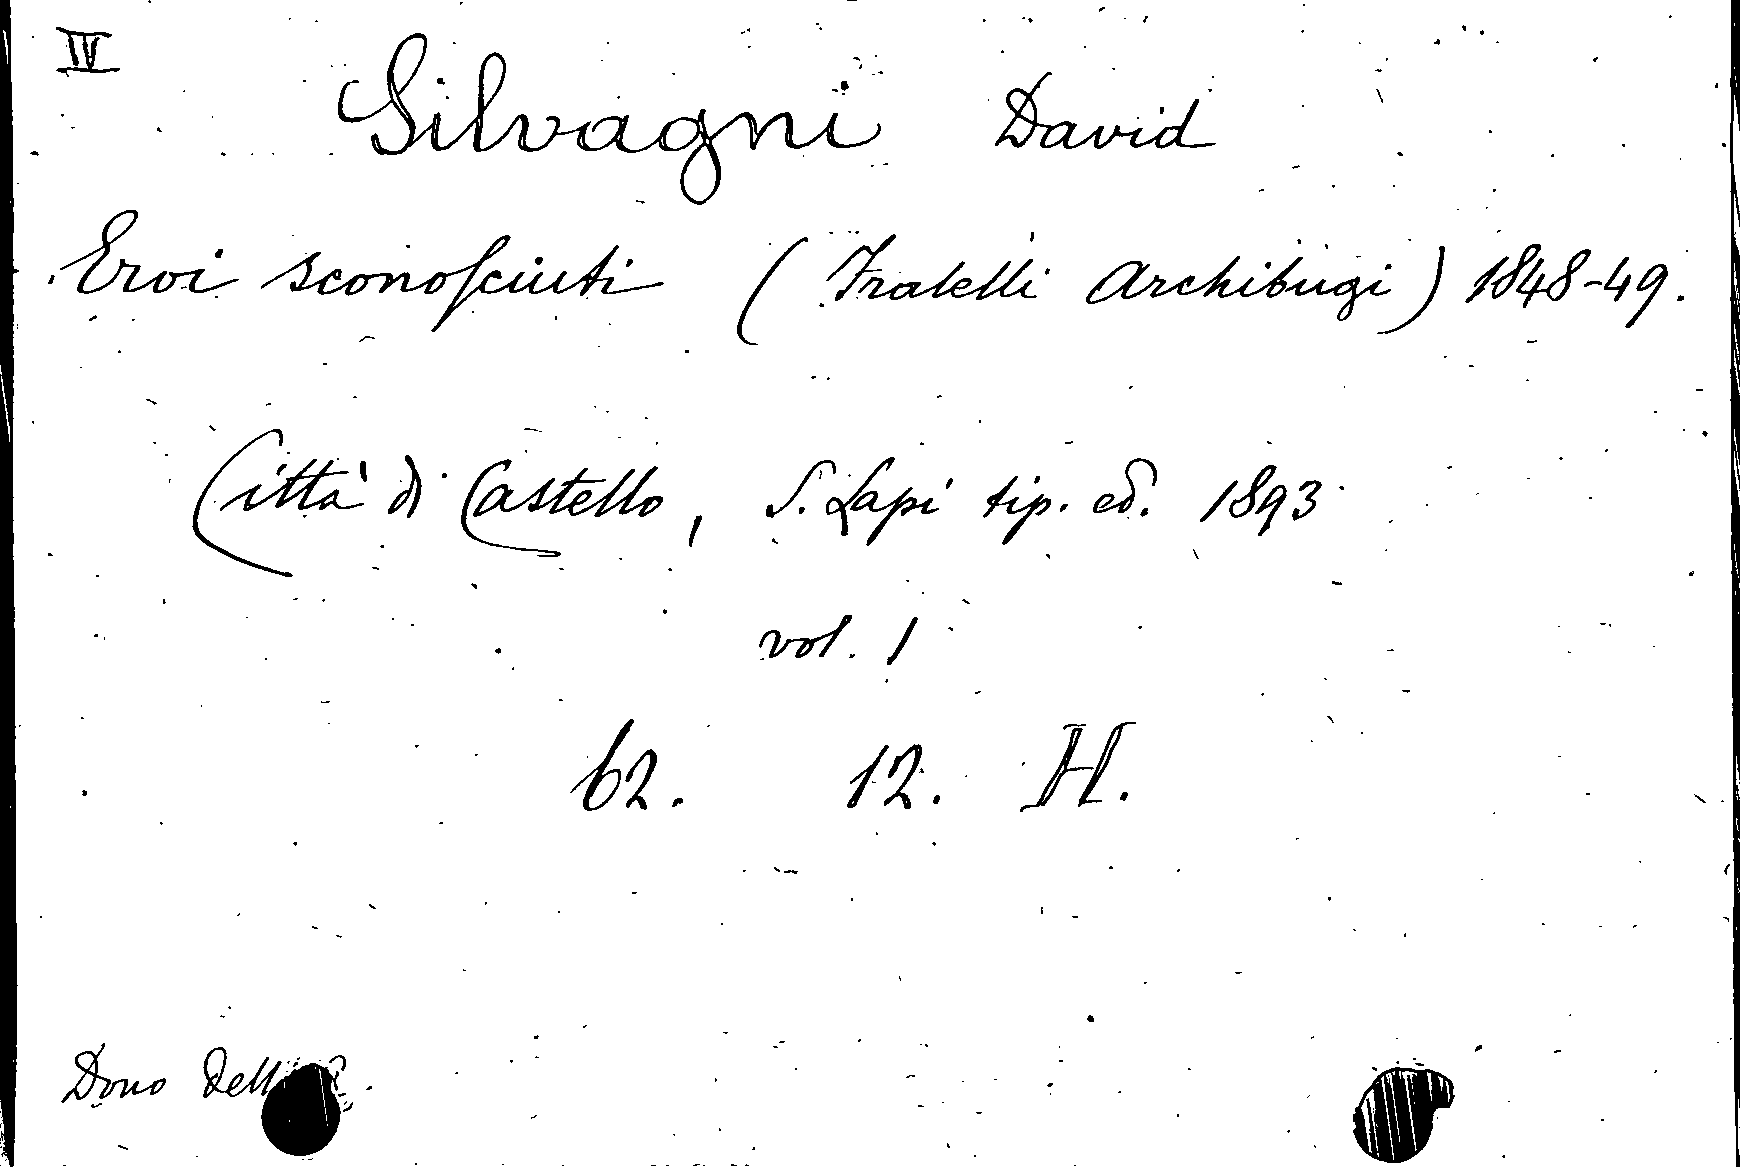 IV
Silvagni David
Eroi sconosciuti (Fratelli Archibugi) 1848-49.
Città di Castello, S. Lapi tip. ed. 1893
vol. 1
62. 12. H.
Dono